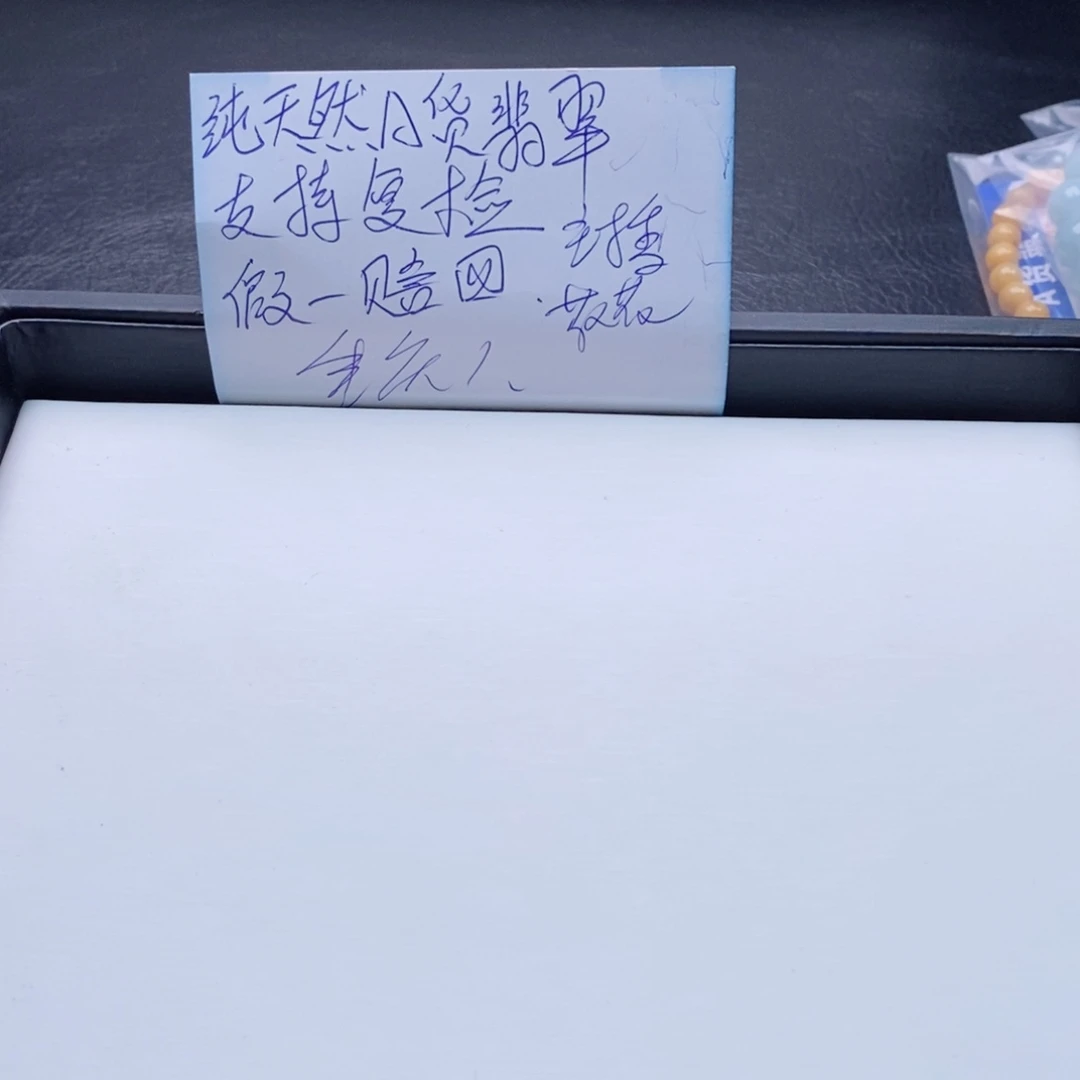 纯天然A货翡翠
支持复检
假一赔四
主播
敬茂
A货